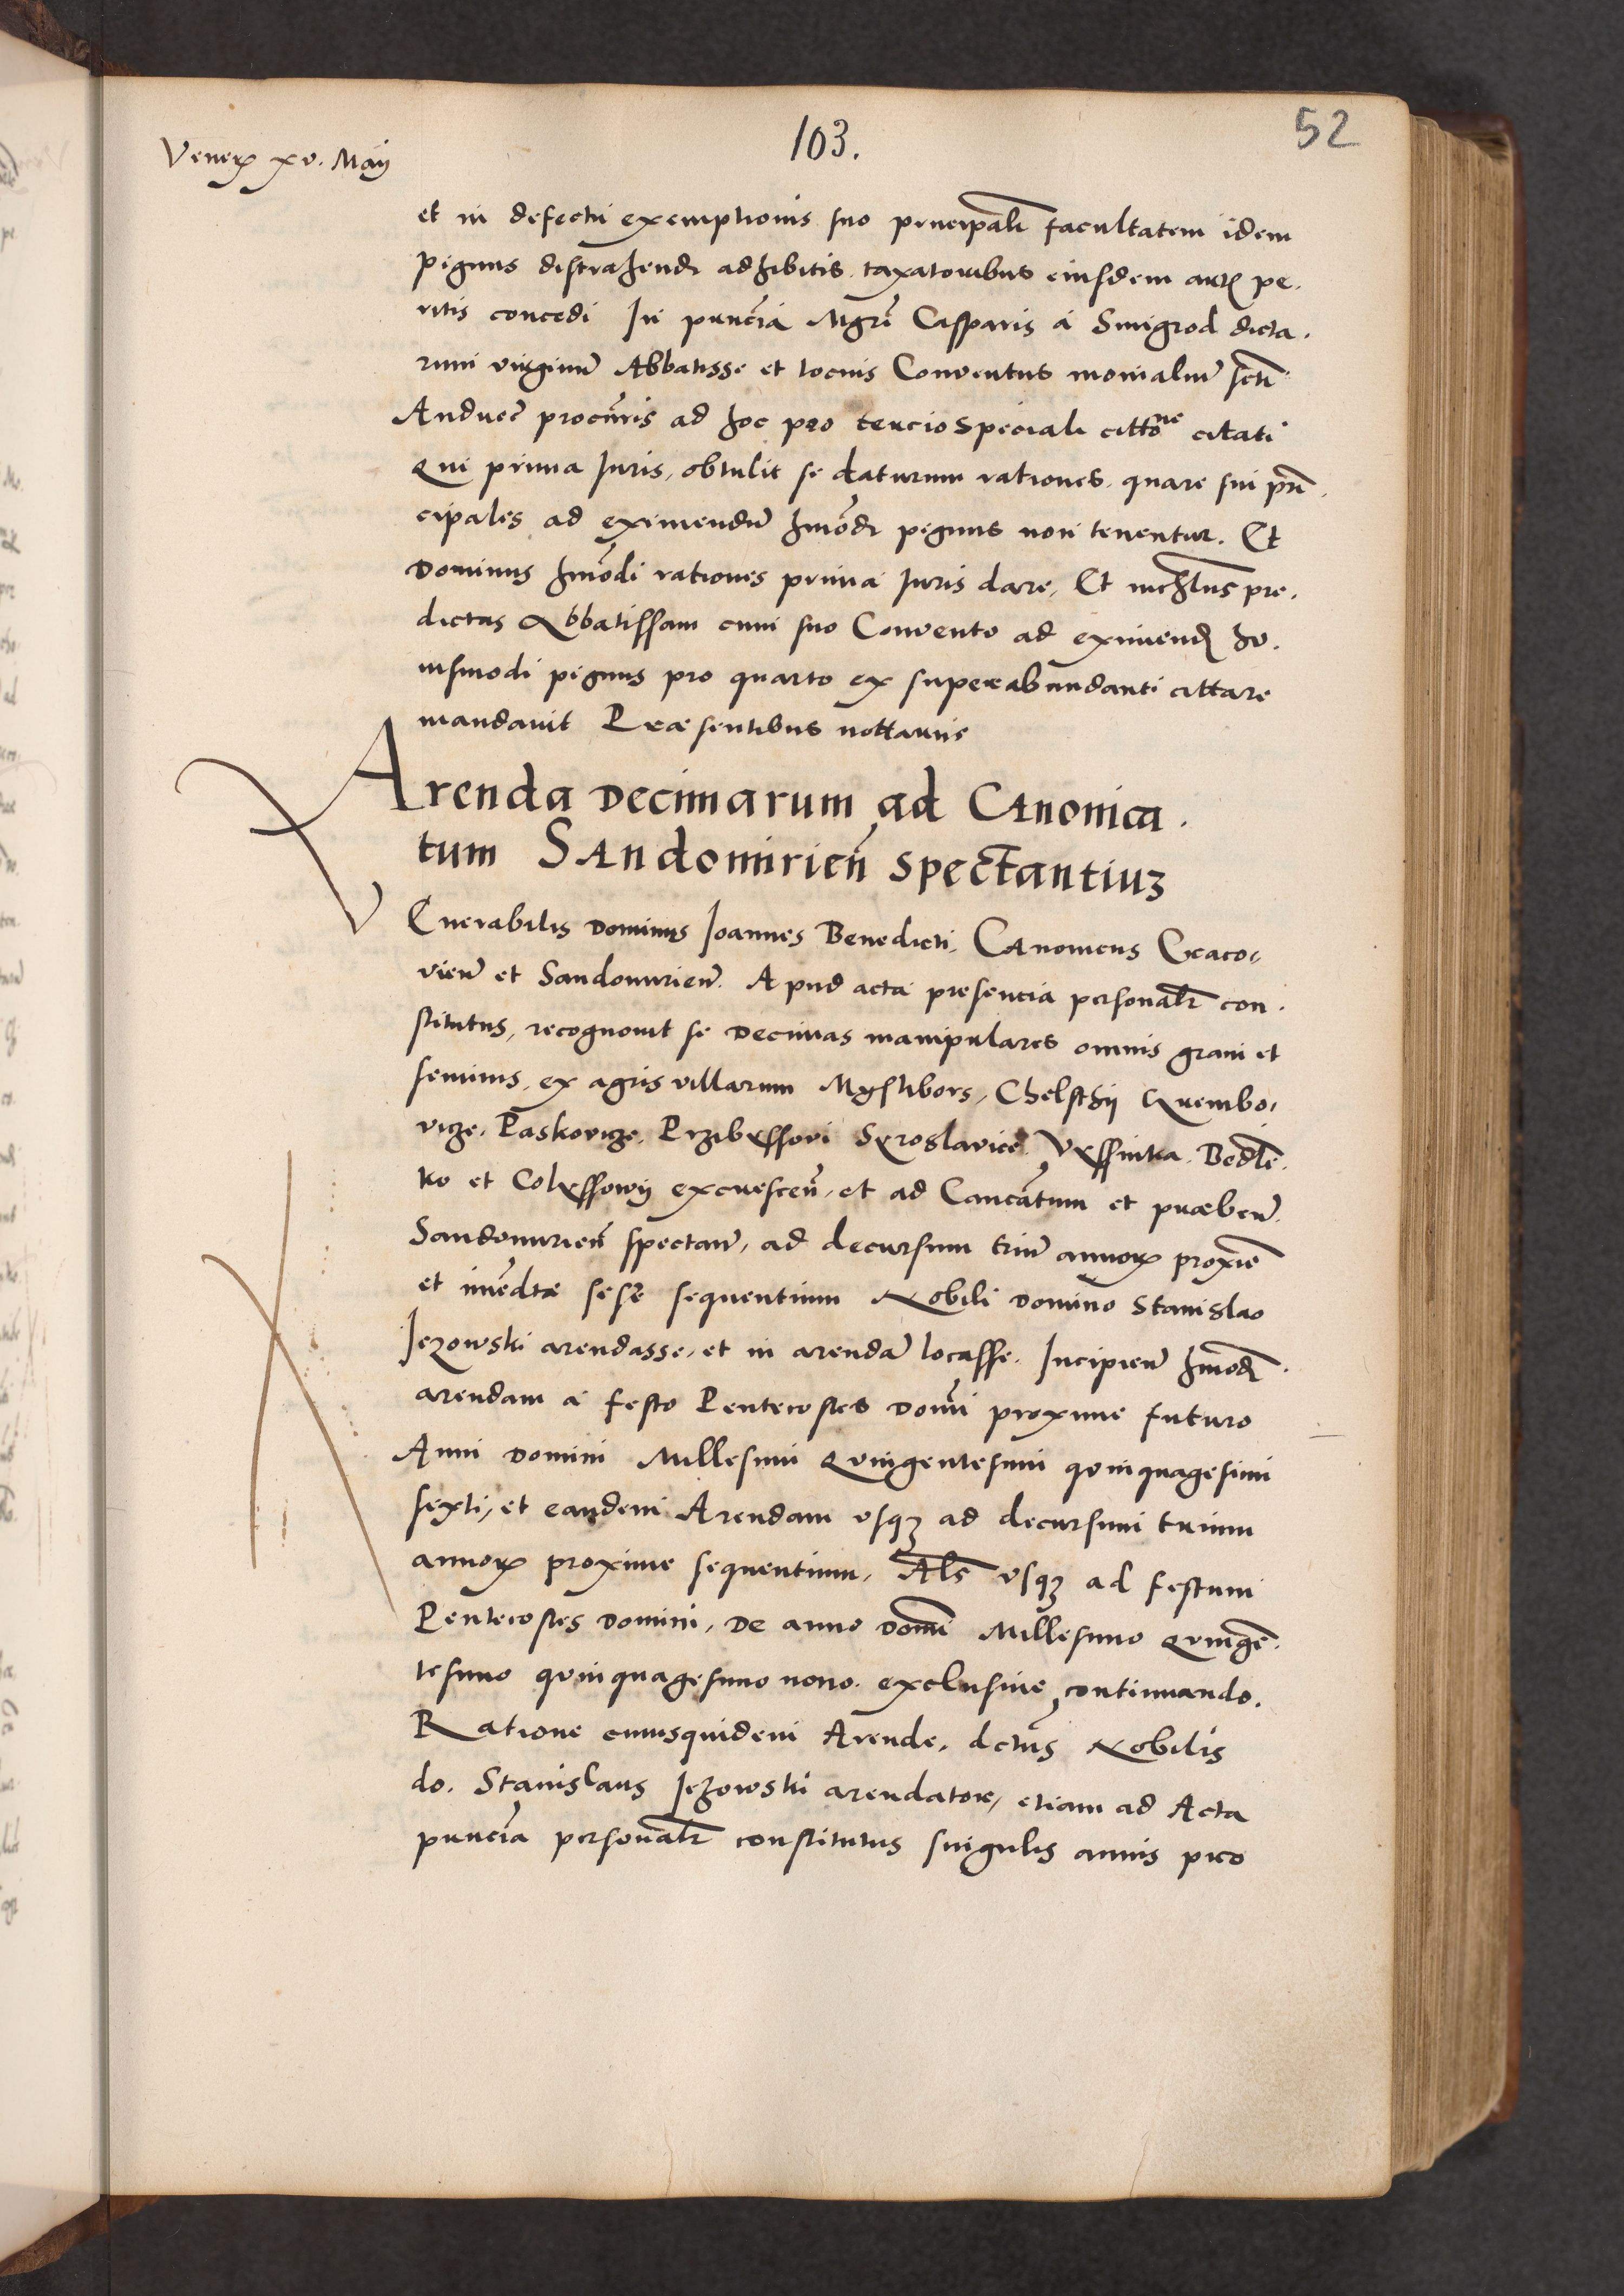 103.
52
Veneris xv. Maij
et in defectu exemptionis suo principali facultatem idem
pignus distrahendi adhibitis taxatoribus eiusdem artis pe.
ritis concedi In pnncia Mgri Casparis a Smigrod dicta.
rum virginum Abbatisse et tocius Conventus monialium scti
Andree procuris ad hoc pro tercio speciali cittone citati
Qui prima Iuris, obtulit se daturum rationes quare sui prin
cipales ad eximendum hmodi pignus non tenentur. Et
Dominus hmodi rationes prima Iuris dare, Et nichilominus pre.
dictas Abbatissam cum suo Convento ad eximend hu.
iusmodi pignus pro quarto ex superabundanti cittare
mandavit Praesentibus nottariis
Arenda Decimarum ad Canonica.
tum Sandomirien spectantium
VEnerabilis Dominus Ioannes Benedicti, Canonicus Craco,
vien et Sandomirien. Apud acta presencia personalr con.
stitutus, recognovit se Decimas manipulares omnis grani et
seminis, ex agris villarum Myslibors, Chelsthij Grembo,
vicze, Paskovicze, Przibyssovi Syroslavice Vyssinka. Bedle.
ko et Colyssowij excrescen, et ad Cancatum et praeben.
Sandomirien spectan, ad decursum trium annorum proxime
et immedtae sese sequentium Nobili Domino Stanislao
Jezowski arendasse, et in arendam locasse. Incipien hmodi.
arendam a festo Pentecostes Domi proxime futuro
Anni Domini Millesimi Quingentesimi quinquagesimi
sexti, et eandem Arendam usque ad decursum trium
annorum proxime sequentium, Als usque ad festum
Pentecostes Domini, De anno Domi Millesimo Quingen.
tesimo quinquagesimo nono. exclusive continuando.
Ratione cuiusquidem Arende, dctus Nobilis
do. Stanislaus Jezowski arendator, etiam ad Acta
pnncia personalr constitutus singulis annis pro